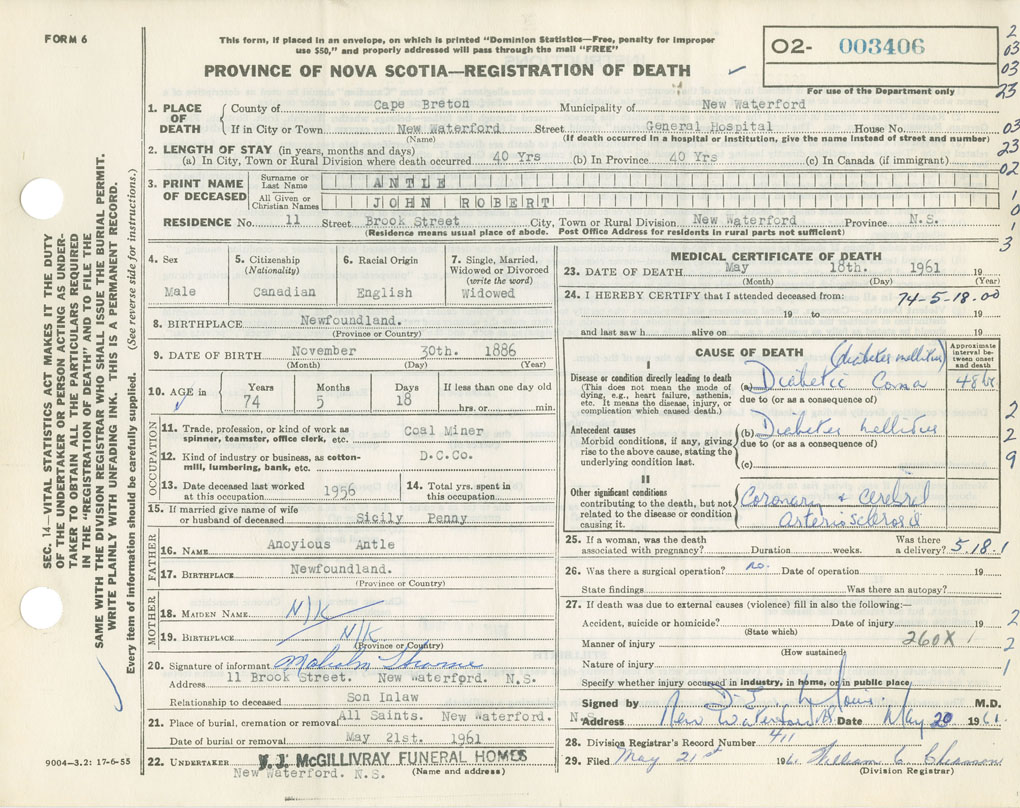 FORM 6
This form, if placed in an envelope, on which is printed "Dominion Statistics—Free, penalty for improper
use $50," and properly addressed will pass through the mail "FREE"
PROVINCE OF NOVA SCOTIA—REGISTRATION OF DEATH
02- 003406
For use of the Department only
2
03
03
23
03
23
02
1
0
1
3
SEC. 14—VITAL STATISTICS ACT MAKES IT THE DUTY
OF THE UNDERTAKER OR PERSON ACTING AS UNDER-
TAKER TO OBTAIN ALL THE PARTICULARS REQUIRED
IN THE "REGISTRATION OF DEATH" AND TO FILE THE
SAME WITH THE DIVISION REGISTRAR WHO SHALL ISSUE THE BURIAL PERMIT.
WRITE PLAINLY WITH UNFADING INK. THIS IS A PERMANENT RECORD.
Every item of information should be carefully supplied. (See reverse side for instructions.)
1. PLACE OF DEATH
County of Cape Breton Municipality of New Waterford
If in City or Town New Waterford Street General Hospital House No.
(Name) (If death occurred in a hospital or institution, give the name instead of street and number)
2. LENGTH OF STAY (in years, months and days)
(a) In City, Town or Rural Division where death occurred 40 Yrs (b) In Province 40 Yrs (c) In Canada (if immigrant)
3. PRINT NAME OF DECEASED
Surname or Last Name ANTLE
All Given or Christian Names JOHN ROBERT
RESIDENCE No. 11 Street Brook Street City, Town or Rural Division New Waterford Province N.S.
(Residence means usual place of abode. Post Office Address for residents in rural parts not sufficient)
4. Sex
Male
5. Citizenship
(Nationality)
Canadian
6. Racial Origin
English
7. Single, Married,
Widowed or Divorced
(write the word)
Widowed
8. BIRTHPLACE Newfoundland.
(Province or Country)
9. DATE OF BIRTH November 30th. 1886
(Month) (Day) (Year)
10. AGE in
Years Months Days If less than one day old
74 5 18 hrs. or min.
OCCUPATION
11. Trade, profession, or kind of work as
spinner, teamster, office clerk, etc. Coal Miner
12. Kind of industry or business, as cotton-
mill, lumbering, bank, etc. D.C.Co.
13. Date deceased last worked
at this occupation 1956
14. Total yrs. spent in
this occupation
15. If married give name of wife
or husband of deceased Sicily Penny
FATHER
16. NAME Anoyious Antle
17. BIRTHPLACE Newfoundland.
(Province or Country)
MOTHER
18. MAIDEN NAME N/K
19. BIRTHPLACE N/K
(Province or Country)
20. Signature of informant Malcolm
Address 11 Brook Street. New Waterford. N.S.
Relationship to deceased Son Inlaw
21. Place of burial, cremation or removal All Saints. New Waterford. N.
Date of burial or removal May 21st. 1961
22. UNDERTAKER V. J. McGILLIVRAY FUNERAL HOMES
New Waterford. N.S. (Name and address)
9004—3.2: 17-6-55
MEDICAL CERTIFICATE OF DEATH
23. DATE OF DEATH May 18th. 1961 19
(Month) (Day) (Year)
24. I HEREBY CERTIFY that I attended deceased from: 74-5-18.00
19 to 19
and last saw h alive on 19
CAUSE OF DEATH (diabetes mellitus)
Approximate
interval be-
tween onset
and death
I
Disease or condition directly leading to death
(This does not mean the mode of
dying, e.g., heart failure, asthenia,
etc. It means the disease, injury, or
complication which caused death.)
(a) Diabetic Coma 48 hr.
due to (or as a consequence of)
Antecedent causes
Morbid conditions, if any, giving
rise to the above cause, stating the
underlying condition last.
(b) Diabetes Mellitus
due to (or as a consequence of)
(c)
2
2
9
II
Other significant conditions
contributing to the death, but not
related to the disease or condition
causing it.
Coronary + Cerebral
Arteriosclerosis
25. If a woman, was the death Was there
associated with pregnancy? Duration weeks. a delivery? 5.18.1
26. Was there a surgical operation? no. Date of operation 19
State findings Was there an autopsy?
27. If death was due to external causes (violence) fill in also the following:—
Accident, suicide or homicide? Date of injury 19 2
(State which)
Manner of injury 260X 1 2
(How sustained)
Nature of injury 1
Specify whether injury occurred in industry, in home, or in public place
Signed by M.D.
Address New Waterford NS. Date May 20 1961.
28. Division Registrar's Record Number 411
29. Filed May 21st 1961 William C
(Division Registrar)